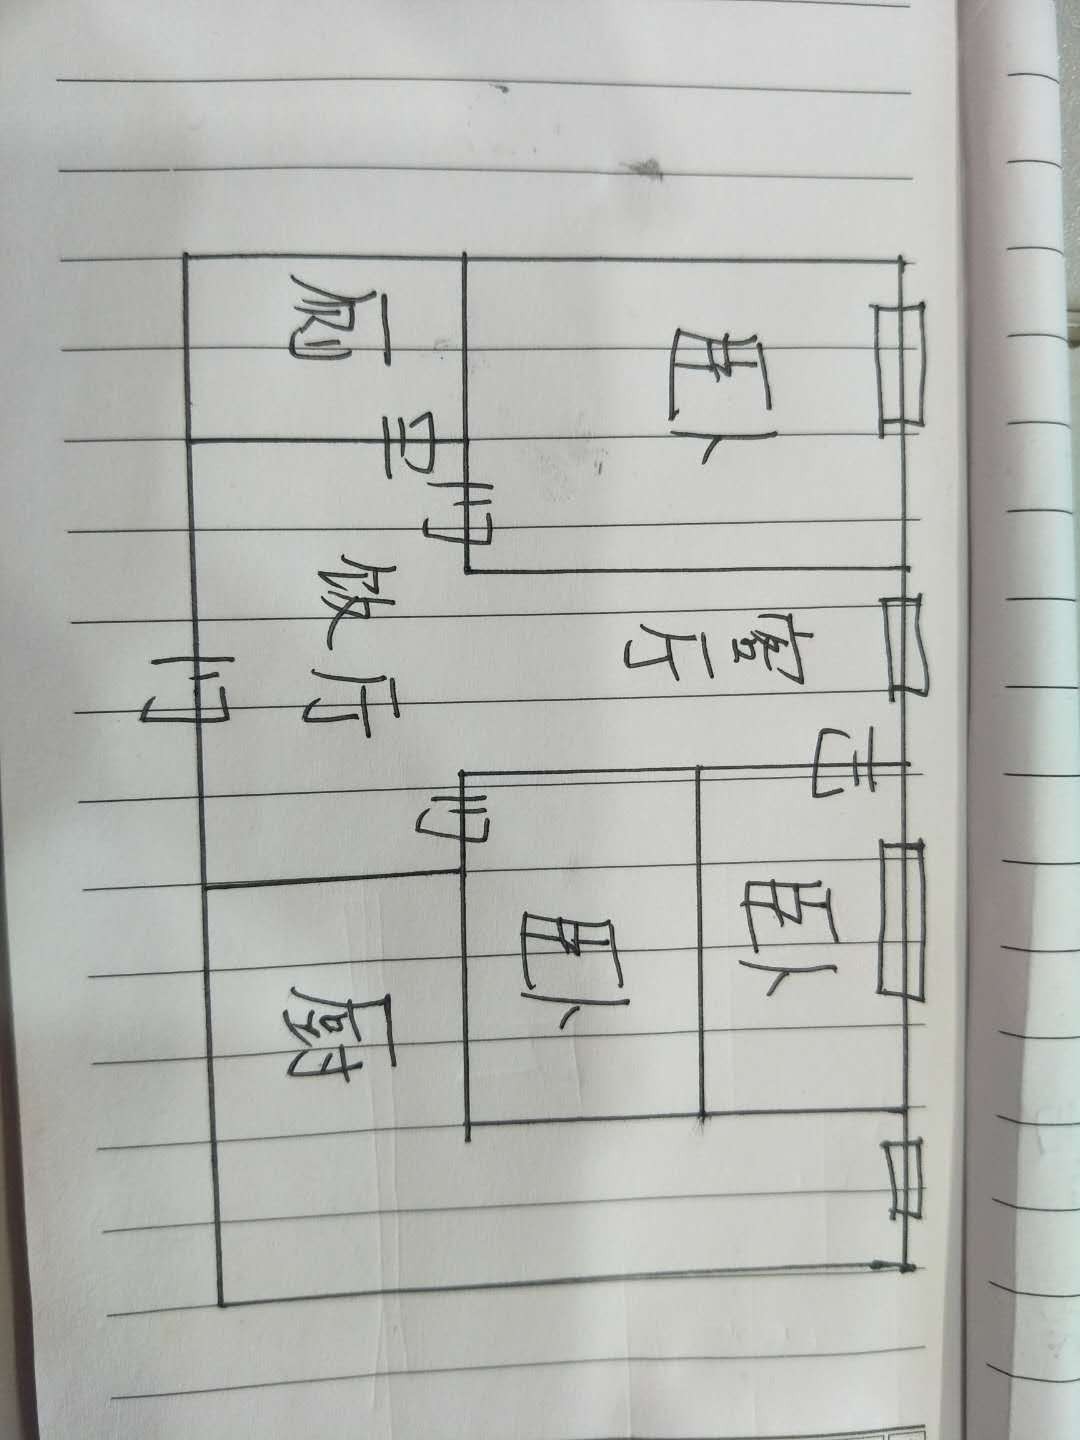 门
卧
客
厅
卧
卧
门
门
门
厕
饭厅
厨
门